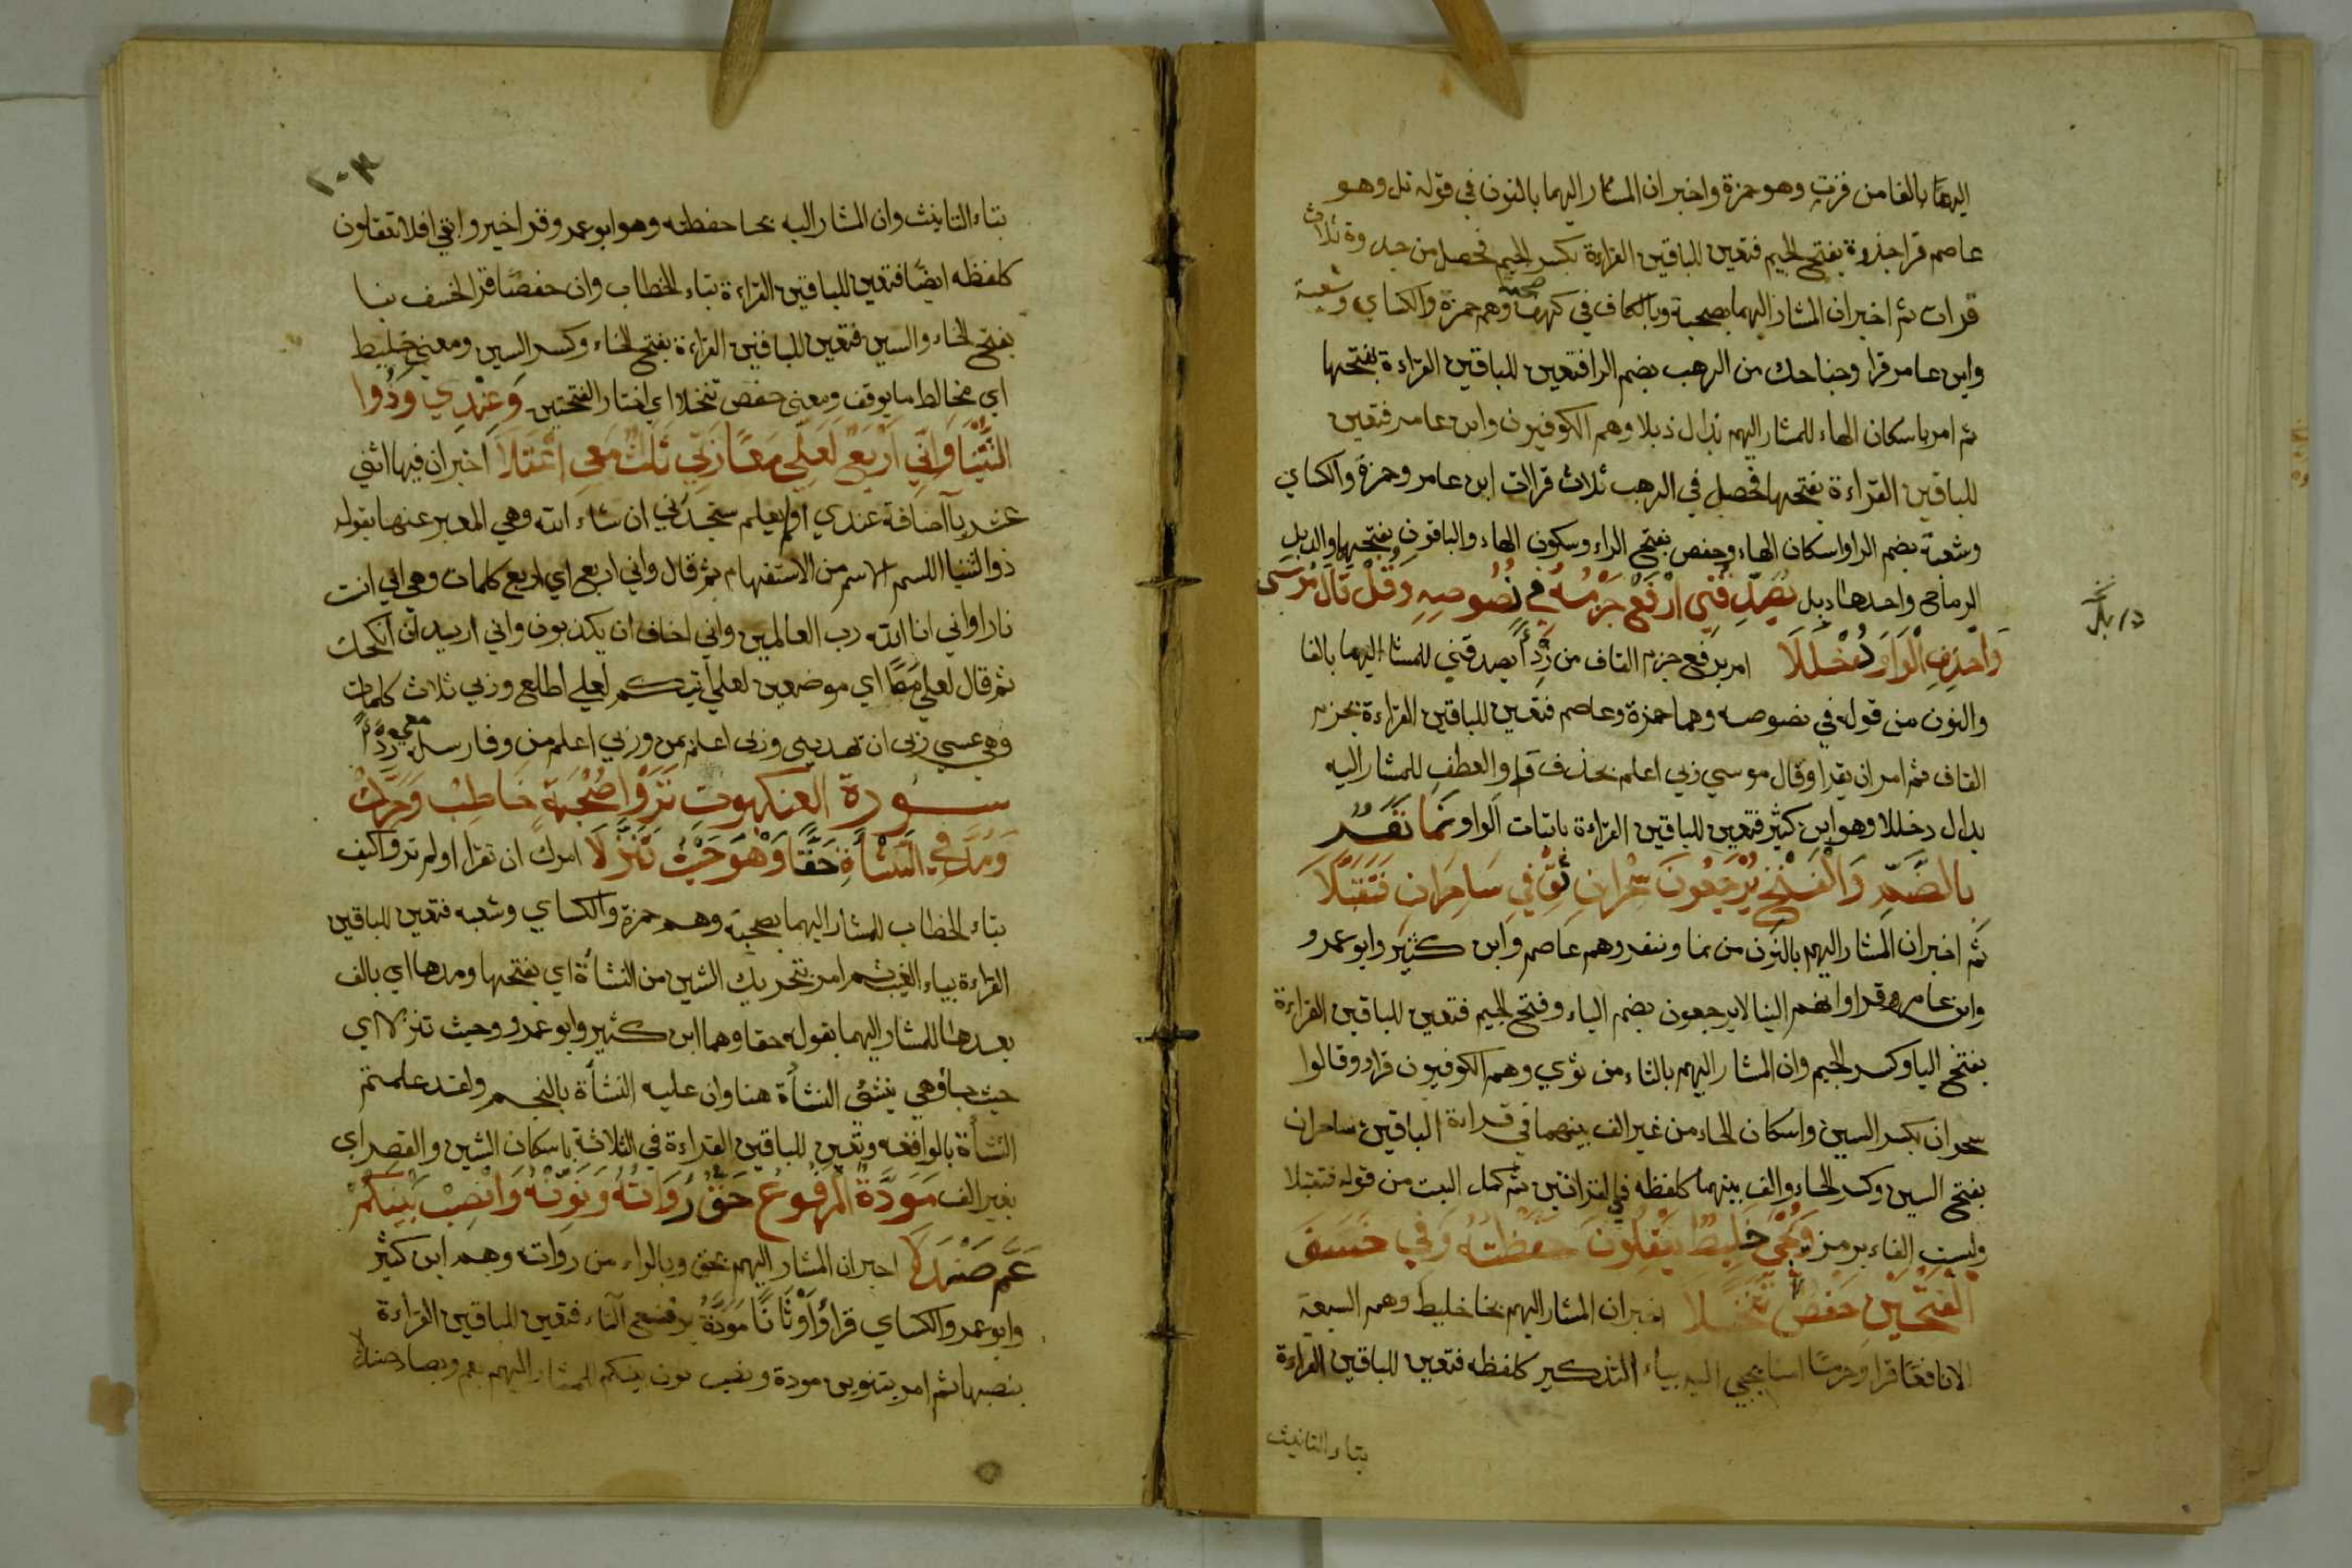 اليهما بالفا من فزت وهو حمزة واخبر ان المشار اليهما بالنون في قوله نل وهو
عاصم قرا جذوة بفتح الجيم فتعين للباقين القراءة بكسر الجيم فحصل من جذوة ثلاث
قراات ثم اخبر ان المشار اليهما بصحبة وبالكاف في كهف صحبة وهم حمزة والكساي وشعبة
وابن عامر قرا وجناحك من الرهب بضم الرا فتعين للباقين القراءة بفتحها
ثم امر باسكان الهاء للمشار اليهم بذال ذبلا وهم الكوفيون وابن عامر فتعين
للباقين القراءة بفتحها فحصل في الرهب ثلاث قراات ابن عامر وحمزة والكساي
وشعبة بضم الرا واسكان الهاء وحفص بفتح الراء وسكون الهاء والباقون بفتحهما والذبل
الرماح واحدها ذبل يُصَدِّقُنِي ارْفَعْ جَزْمُهُ فِي نُصُوصِهِ وَقُلْ قَالَ مُوسَى
وَاحْذِفِ الْوَاوَ دُخْلُلَا امر برفع جزم القاف من رِدْأً يصدقني للمشار اليهما بالفا
والنون من قوله في نصوصه وهما حمزة وعاصم فتعين للباقين القراءة بجزم
القاف ثم امر ان يقرا وقال موسي ربي اعلم بحذف واو العطف للمشار اليه
بدال دخللا وهو ابن كثير فتعين للباقين القراءة باثبات الواو نَمَا نَفَرٌ
بِالضَّمِّ وَالْفَتْحِ يَرْجِعُونَ سِحْرَانِ ثِقْ فِي سَاحِرَانِ فَتُقْبَلَا
ثم اخبر ان المشار اليهم بالنون من نما ونفر وهم عاصم وابن كثير وابو عمرو
وابن عامر قراوا انهم الينا لا يرجعون بضم الياء وفتح الجيم فتعين للباقين القراءة
بفتح اليا وكسر الجيم وان المشار اليهم بالثاء من ثوي وهم الكوفيون قراو وقالوا
سحران بكسر السين واسكان الحاء من غير الف بينهما في قراءة الباقين ساحران
بفتح السين وكسر الحاء والف بينهما كلفظه في القراتين ثم كمل البيت من قوله فتقبلا
وليست الفاء برمز وَيُجْبَى خَلِيطٌ يَعْقِلُونَ حَفِظْتَهُ وَفِي خَسَفَ
الْفَتْحَيْنِ حَفْصٌ تَنَخَّلَا اخبر ان المشار اليهم بخا خليط وهم السبعة
الا نافعا قرا وحرما امنا يجبي اليه بياء التذكير كلفظه فتعين للباقين القراءة
بتاء التانيث
ذبل
٢٠٣
بتاء التانيث وان المشار اليه بحا حفظته وهو ابو عمرو قرا خير وابقي افلا تعقلون
كلفظه ايضا فتعين للباقين القراءة بتاء الخطاب وان حفصا قرا لخسف بنا
بفتح الخاء والسين فتعين للباقين القراءة بفتح الخاء وكسر السين ومعني خليط
اي مخالط ما يوقف ومعني حفص تنخلا اي اختار الفتحتين وَعِنْدِي وَذُوا
الثُّنْيَا وَإِنِّي أَرْبَعٌ لَعَلِّي مَعًا رَبِّي ثَلَاثٌ مَعِي اعْتَلَا اخبر ان فيها اثني
عشر يا اضافة عندي اولم يعلم ستجدني ان شاء الله وهي المعبر عنها بقوله
ذوا الثنيا الاسم من الاستفهام ثم قال واني اربع اي اربع كلمات وهي اني انست
نارا واني انا الله رب العالمين واني اخاف ان يكذبون واني اريد ان انكحك
ثم قال لعلي معًا اي موضعين لعلي اتيكم لعلي اطلع وربي ثلاث كلمات
وهي عسي ربي ان يهديني وربي اعلم بمن وربي اعلم من وفارسله معي رِدْأً
ســورة العنكبوت يَرَوْا صُحْبَةٌ خَاطِبْ وَحَرِّكْ
وَمُدَّ فِي النَّشْأَةِ حَقًّا وَهْوَ حَيْثُ تَنَزَّلَا امرك ان تقرا اولم تروا كيف
بتاء الخطاب للمشار اليهما بصحبة وهم حمزة والكساي وشعبه فتعين للباقين
القراءة بياء الغيب ثم امر بتحريك الشين من النشأة اي بفتحها ومدها اي بالف
بعدها للمشار اليهما بقوله حقا وهما ابن كثير وابو عمرو وحيث تنزلا اي
حيث جاؤهي ينشئ النشأة هنا وان عليه النشأة بالنجم ولقد علمتم
النشأة بالواقعه وتعين للباقين القراءة في الثلاثة باسكان الشين والقصر اي
بغير الف مَوَدَّةً الْمَرْفُوعُ حَقُّ رُوَاتُهُ وَنَوِّنْهُ وَانْصِبْ بَيْنَكُمْ
عَمَّ صَنْدَلَا اخبر ان المشار اليهم بحق وبالراء من رواته وهم ابن كثير
وابو عمرو والكساي قرأُوا أوْثَانًا مَوَدَّةُ برفع التاء فتعين للباقين القراءة
بنصبها ثم امر بتنوين مودة ونصب نون بينكم للمشار اليهم بعم وبصاد صندلا